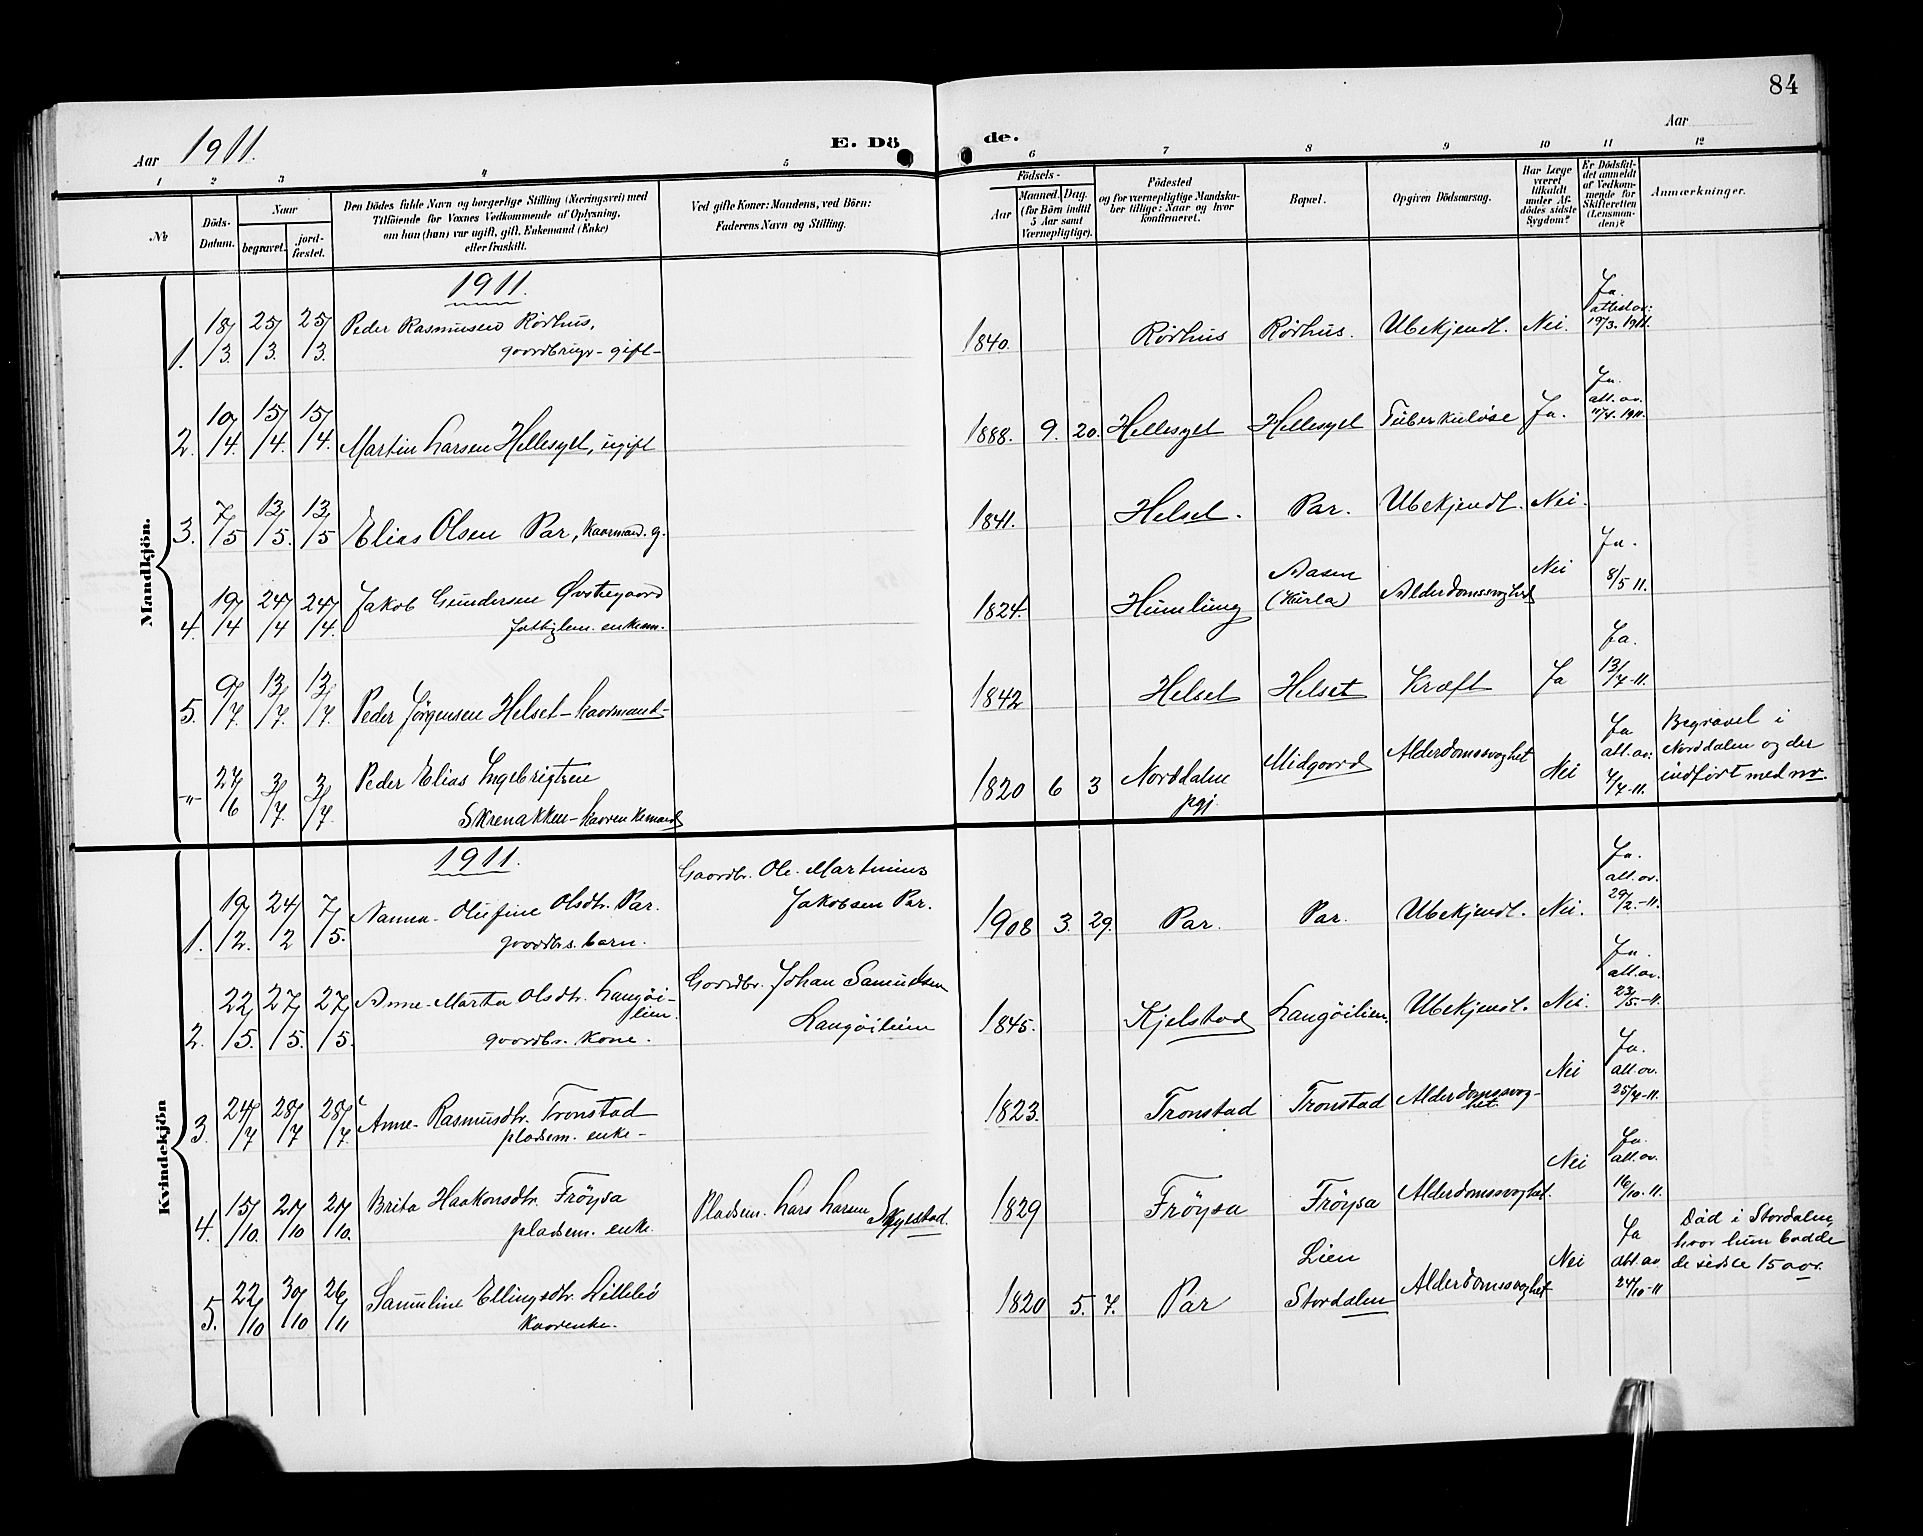 84
Aar 1911.
E. Dö de.
Aar
1 2 3 4 5 6 7 8 9 10 11 12
№
Döds-
Datum.
Naar
begravet.
jord-
fæstet.
Den Dödes fulde Navn og borgerlige Stilling (Næringsvei) med
Tilföiende for Voxnes Vedkommende af Oplysning,
om han (hun) var ugift, gift, Enkemand (Enke)
eller fraskilt.
Ved gifte Koner: Mandens, ved Börn:
Faderens Navn og Stilling.
Födsels-
Aar
Maaned. Dag.
(for Börn indtil
5 Aar samt
Værnepligtige).
Födested
og for værnepligtige Mandska-
ber tillige: Naar og hvor
konfirmeret.
Bopæl.
Opgiven Dödsaarsag.
Har Læge
været
tilkaldt
under Af-
dödes sidste
Sygdom?
Er Dödsfal-
det anmeldt
af Vedkom-
mende for
Skifteretten
(Lensman-
den)?
Anmærkninger.
Mandkjön.
1911.
1. 18/3 25/3 25/3 Peder Rasmusen Rödhus,
gaardbrugr - gift - 1840. Rödhus Rödhus. Ubekjendt. Nei. Ja.
19/3. 1911.
2. 10/4. 15/4. 15/4. Martin Larsen Hellesylt, ugift 1888. 9. 20. Hellesylt Hellesylt Tuberkulose Ja. Ja.
att. av.
11/4. 1911.
3. 7/5 13/5. 13/5 Elias Olsen Par, kaarmand. g. 1841. Helset. Par. Ubekjendt. Nei. Ja.
8/5 11.
4. 19/4 24/4 24/4. Jakob Gundersen Øvstegaard
enkem. 1824. Humlung Aasen
Alderdomssvaghed Nei Ja.
5. 9/7 13/7. 13/7. Peder Jørgensen Helset - kaarmand - 1842 Helset Helset Kræft Ja 13/7-11.
-"- 27/6 3/7. 3/7. Peder Elias Ingebrigtsen
Skrenakken - kaarenkemand 1820 6 3 Norddalen
pgj. Midgaard Alderdomssvaghet Nei Ja
att. av.
4/7-11. Begravet i
Norddalen og der
indført med no.
Kvindekjön
1911.
1. 19/2. 24/2 7/5. Nanna Olufine Olsdtr. Par.
gaardbrs. barn. Gaardbr. Ole Martinius
Jakobsen Par. 1908 3. 29. Par. Par. Ubekjendt. Nei. Ja.
att. av.
29/2.-11.
2. 22/5. 27/5. 27/5. Anne Marta Olsdtr. Langøi-
lien.
gaardbr. kone. Gaardbr. Johan Samuelsen
Langøilien 1845. Kjelstad Langøilien. Ubekjendt. Nei. Ja.
att. av.
23/5.-11.
3. 24/7 28/7 28/7. Anne Rasmusdtr. Tronstad
pladsm. enke - 1823. Tronstad Tronstad Alderdomssvag-
het. Nei Ja.
att. av.
25/7-11.
4. 15/10. 21/10 21/10. Brita Haakonsdtr. Frøysa
pladsm. enke. Pladsm. Lars Larsen Skylstad. 1829 Frøysa Frøysa Alderdomssvaghet. Nei Ja.
att. av.
16/10.11.
5. 22/10 30/10 26/11 Samuline Ellingsdtr. Lillebö
Kaarenke. 1820 5. 7. Par Lien
Stordalen Alderdomssvaghet Nei Ja
att. av
24/10-11 Död i Stordalen,
hvor hun bodde
de sidste 15 aar.